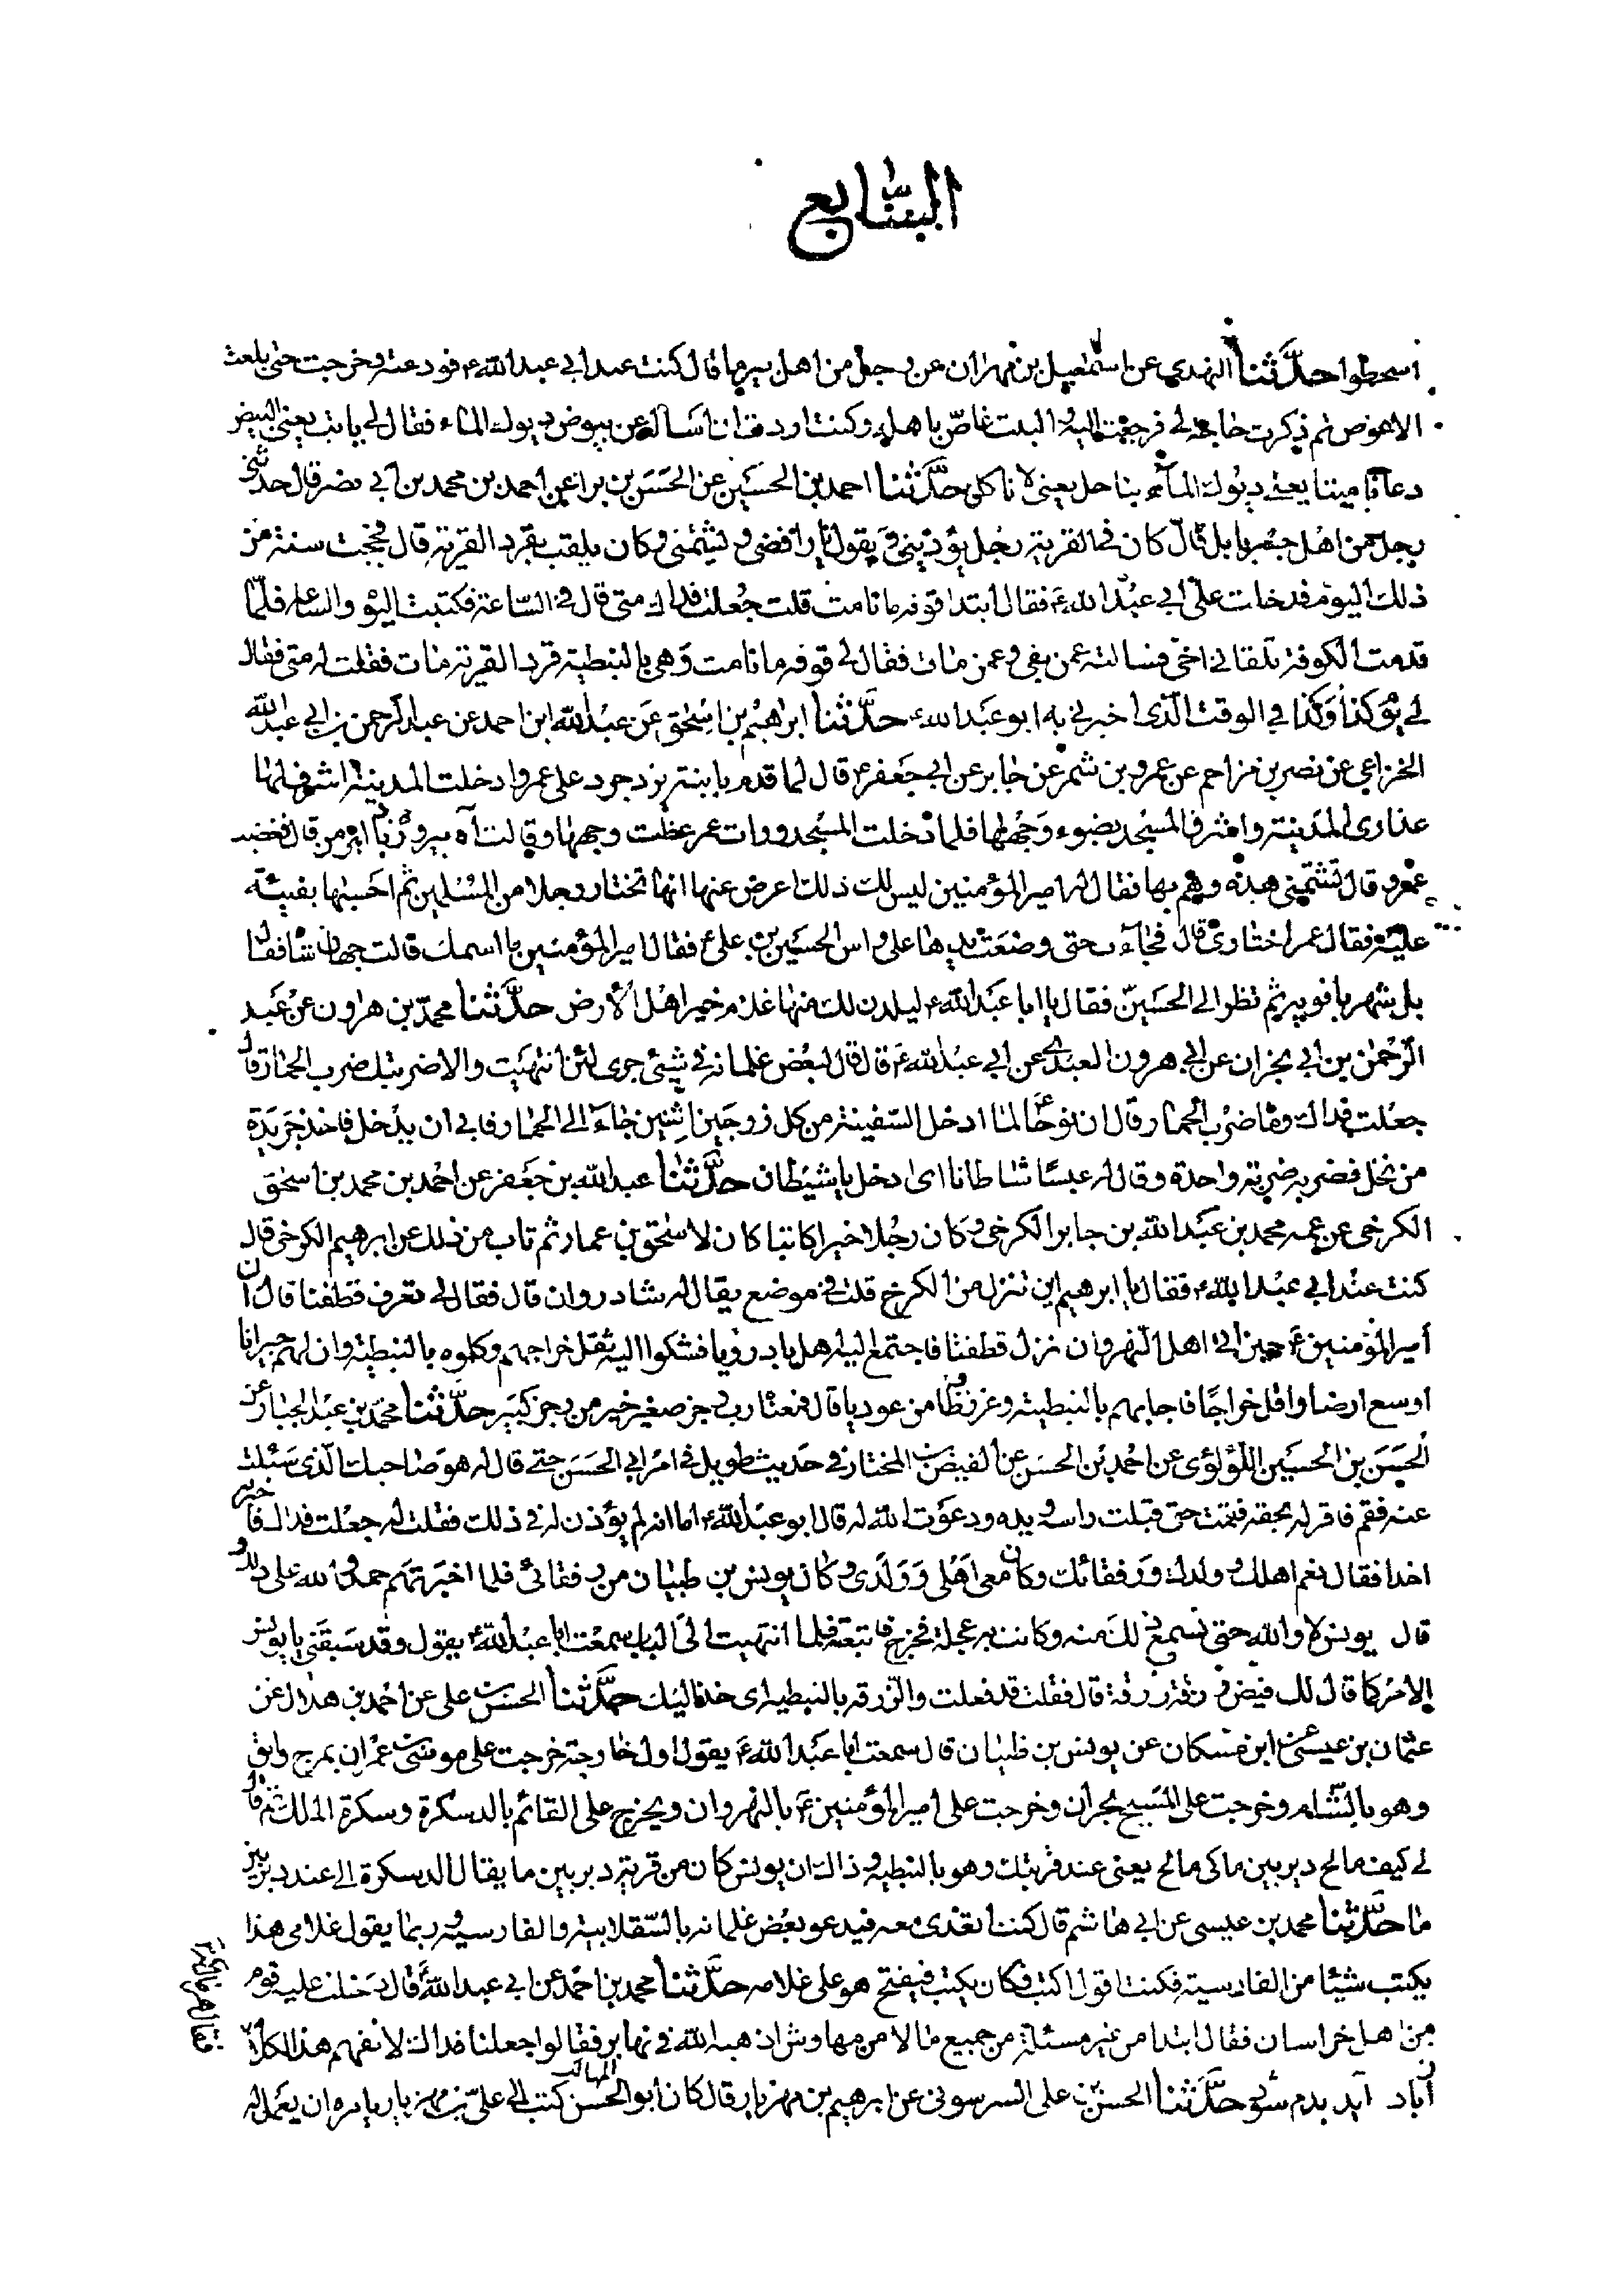 السابع
اسحطوا حدثنا النهدي عن اسمعيل بن مهران عن رجل من اهل بيرما قال كنت عند ابي عبد الله ع فودعته وخرجت حتى بلغت
الاعوص ثم ذكرت حاجة لي فرجعت اليه والبيت غاص باهله وكنت اردت ان اساله عن بيوض ديوك الماء فقال لي يابت يعني البيض
دعانا ميتا يعني ديوك الماء بناحل يعني لا تاكل حدثنا احمد بن الحسين عن الحسن بن برا عن احمد بن محمد بن ابي نصر قال حدثني
رجل من اهل جسر بابل قال كان في القرية رجل يؤذيني ويقول يا رافضي ويشتمني وكان يلقب بقرد القرية قال فحججت سنة من
ذلك اليوم فدخلت على ابي عبد الله ع فقال ابتدا قوفه ما نامت قلت جعلت فداك متى قال في الساعة فكتبت اليوم والساعة فلما
قدمت الكوفة تلقاني اخي فسالته عمن بقي وعمن مات فقال لي قوفه ما نامت وهي بالنبطية قرد القرية مات فقلت له متى فقال
لي يوم كذا وكذا في الوقت الذي اخبرني به ابو عبد الله ع حدثنا ابراهيم بن اسحق عن عبد الله ابن احمد عن عبد الرحمن بن ابي عبد الله
الخزاعي عن نصر بن مزاحم عن عمرو بن شمر عن جابر عن ابي جعفر ع قال لما قدم بابنة يزدجرد على عمر وادخلت المدينة اشرف لها
عذارى المدينة واشرق المسجد بضوء وجهها فلما دخلت المسجد ورات عمر غطت وجهها وقالت آه بيروز باد هرمز قال فغضب
عمر وقال تشتمني هذه وهم بها فقال له امير المؤمنين ليس لك ذلك اعرض عنها انها تختار رجلا من المسلمين ثم احسبها بفيئه
عليه فقال عمر اختاري قال فجاءت حتى وضعت يدها على راس الحسين بن علي ع فقال امير المؤمنين ما اسمك قالت جهان شاه فقال
بل شهر بانويه ثم نظر الى الحسين فقال يا ابا عبد الله ع ليلدن لك منها غلام خير اهل الأرض حدثنا محمد بن هارون عن عبد
الرحمن بن ابي نجران عن ابي هرون العبدي عن ابي عبد الله ع قال قال لبعض غلمانه في شيئ جرى لئن انتهيت والا ضربتك ضرب الحمار قال
جعلت فداك وما ضرب الحمار قال ان نوحا ع لما ادخل السفينة من كل زوجين اثنين جاء الى الحمار فابى ان يدخل فاخذ جريدة
من نخل فضربه ضربة واحدة وقال له عبسا شاطانا اى ادخل يا شيطان حدثنا عبد الله بن جعفر عن احمد بن محمد بن اسحق
الكرخي عن عمه محمد بن عبد الله بن جابر الكرخي وكان رجلا خيرا كاتبا كان لاسحق بن عمار ثم تاب من ذلك عن ابرهيم الكرخي قال
كنت عند ابي عبد الله ع فقال يا ابرهيم اين تنزل من الكرخ قلت في موضع يقال له شادروان قال فقال لي تعرف قطفتا قال ان
أمير المؤمنين ع حين اتى اهل النهروان نزل قطفتا فاجتمع اليه اهل بادرويا فشكوا اليه ثقل خراجهم وكلموه بالنبطية وان لهم جيرانا
اوسع ارضا واقل خراجا فاجابهم بالنبطية وغرزطا من عوديا قال فمعناه رب رجز صغير خير من رجز كبير حدثنا محمد بن عبد الجبار عن
الحسن بن الحسين اللؤلؤى عن احمد بن الحسن عن الفيض بن المختار في حديث طويل في امر ابي الحسن حتى قال له هو صاحبك الذي سئلت
عنه فقم فاقر له بحقه فقمت حتى قبلت راسه ويده ودعوت الله له قال ابو عبد الله ع اما انه لم يؤذن له في ذلك فقلت له جعلت فداك فاخبر به
احدا فقال نعم اهلك وولدك ورفقائك وكان معي اهلي وولدى وكان يونس بن ظبيان من رفقائى فلما اخبرتهم حمدوا الله على ذلك و
قال يونس لا والله حتى نسمع ذلك منه وكانت به عجلة فخرج فاتبعته فلما انتهيت الى الباب سمعت ابا عبد الله ع يقول وقد سبقني يا يونس
الامر كما قال لك فيض زرقة زرقة قال فقلت قد فعلت والزرقه بالنبطيه اى خذه اليك حدثنا الحسن بن علي عن احمد بن هلال عن
عثمان بن عيسى عن ابن مسكان عن يونس بن ظبيان قال سمعت ابا عبد الله ع يقول اول خارجة خرجت على موسى بن عمران بمرج دابق
وهو بالشام وخرجت على المسيح بحران وخرجت على امير المؤمنين ع بالنهروان ويخرج على القائم بالدسكرة دسكرة الملك ثم قال
لي كيف مالح دير بين ماكى مالح يعني عند قريتك وهو بالنبطيه وذاك ان يونس كان من قرية دير بين ما يقال الدسكرة الى عند دير بين
ما حدثنا محمد بن عيسى عن ابي هاشم قال كنت اتغدى معه فيدعو بعض غلمانه بالسقلابية والفارسية وربما يقول غلامي هذا
يكتب شيئا من الفارسية فكنت اقول اكتب فكان يكتب فيفتح هو على غلامه حدثنا محمد بن احمد عن ابي عبد الله ع قال دخلت عليه قوم
من اهل خراسان فقال ابتدا من غير مسئلة من جمع مالا من مهاوش اذهبه الله في نهابر فقالوا جعلنا فداك لا نفهم هذا الكلام
فقال
باد آيد بدم شود حدثنا الحسن بن علي السرسوني عن ابرهيم بن مهزيار قال كان أبو الحسن كتب الى علي بن مهزيار يامره ان يعمل له